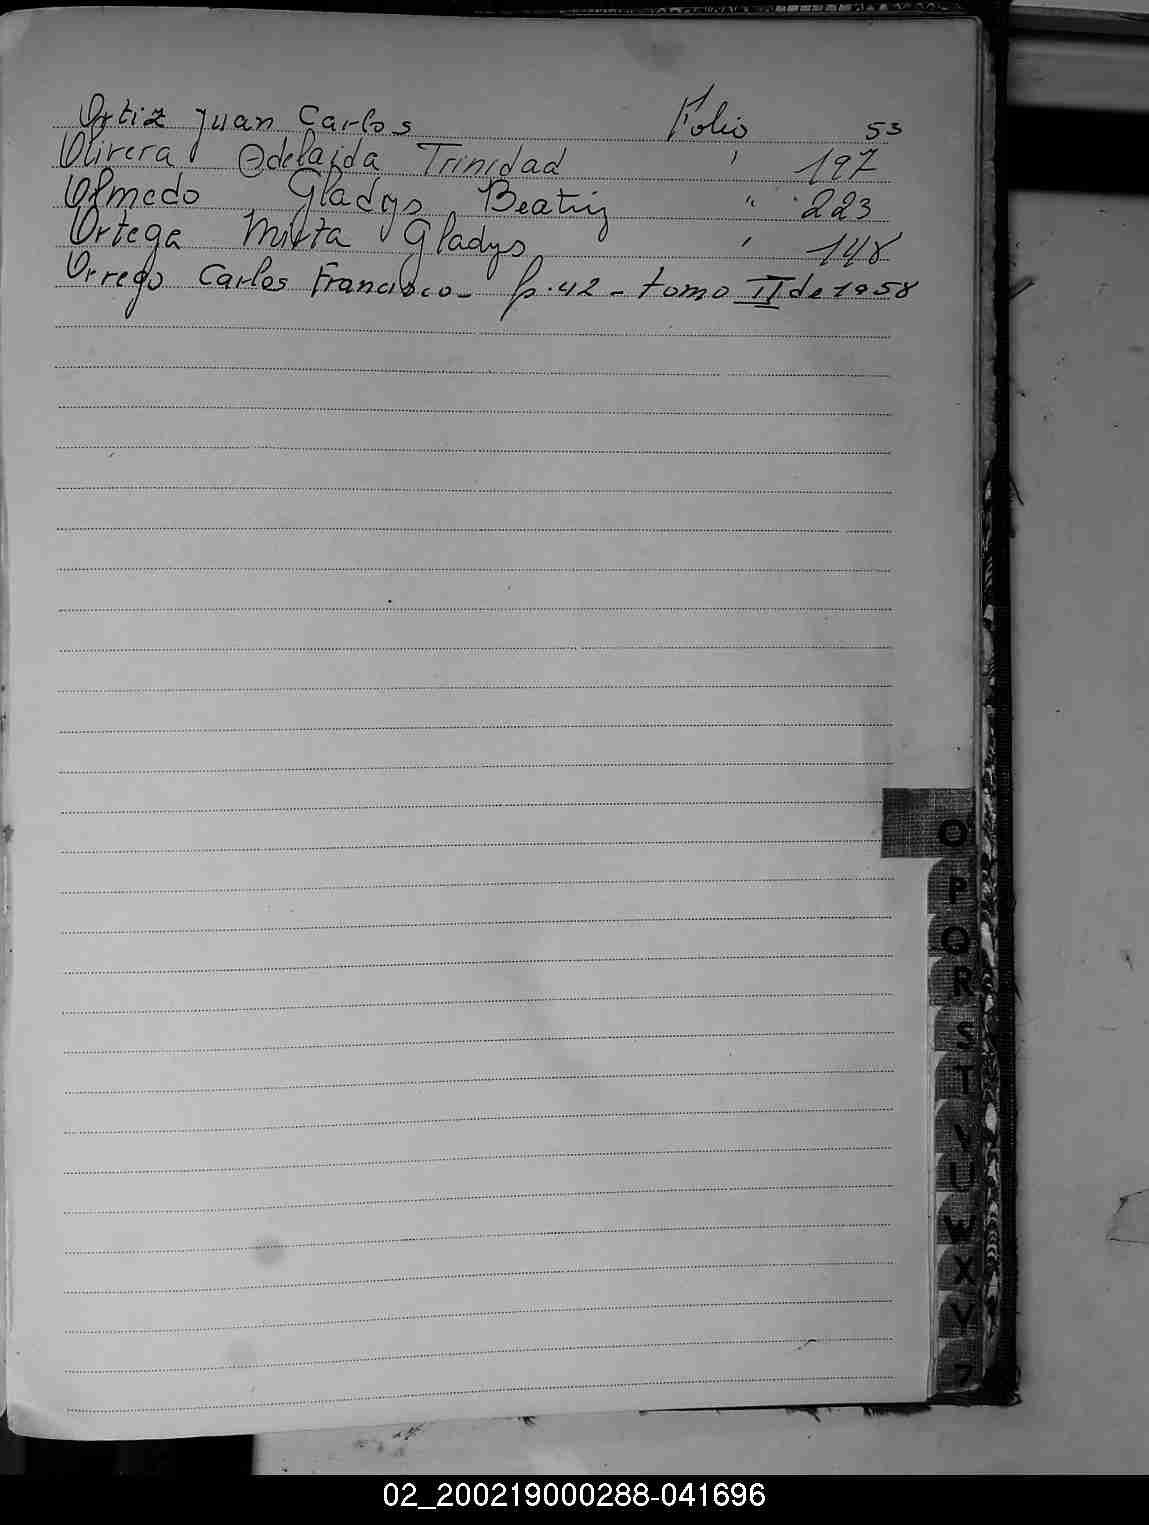 Ortiz Juan Carlos Folio 53
Olivera Odelaida Trinidad " 197
Olmedo Gladys Beatriz " 223
Ortega Mirta Gladys " 148
Orrego Carlos Francisco - f. 42 - tomo II de 1958
O
P
Q
R
S
T
V
U
W
X
Y
Z
02_200219000288-041696